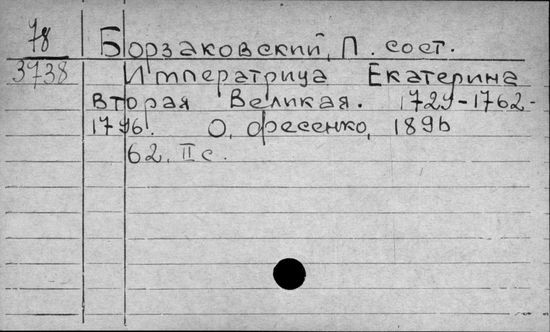 78
Борзаковский, П. сост.
3738
Императрица Екатерина
вторая Великая. 1729-1762-
1796. О, Фесенко, 1896
62, II с.